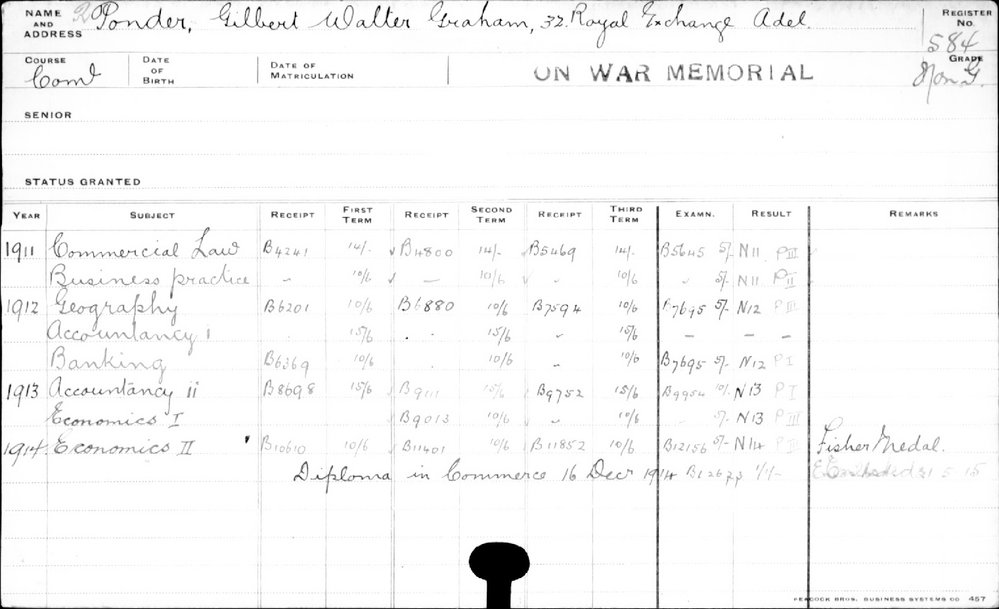 NAME AND ADDRESS Ponder, Gilbert Walter Graham, 32 Royal Exchange Adel. REGISTER No. 584
COURSE Coml DATE OF BIRTH DATE OF MATRICULATION ON WAR MEMORIAL GRADE Non G.
SENIOR
STATUS GRANTED
YEAR SUBJECT RECEIPT FIRST TERM RECEIPT SECOND TERM RECEIPT THIRD TERM EXAMN. RESULT REMARKS
1911 Commercial Law B4241 14/- B4800 14/- B5469 14/- B5645 5/- N11 PIII
Business practice - 10/6 - 10/6 " 10/6 " 5/- N11 PII
1912 Geography B6201 10/6 B6880 10/6 B7594 10/6 B7695 5/- N12 PIII
Accountancy I 15/6 15/6 " 15/6 - - -
Banking B6369 10/6 10/6 " 10/6 B7695 5/- N12 PI
1913 Accountancy ii B8698 15/6 B9111 15/6 B9752 15/6 B9954 10/- N13 PI
Economics I B9013 10/6 " 10/6 " 5/- N13 PIII
1914 Economics II B10610 10/6 B11401 10/6 B11852 10/6 B12156 5/- N14 Fisher Medal.
Diploma in Commerce 16 Decr 1914 1/1/- 5.15
PEACOCK BROS. BUSINESS SYSTEMS CO 457